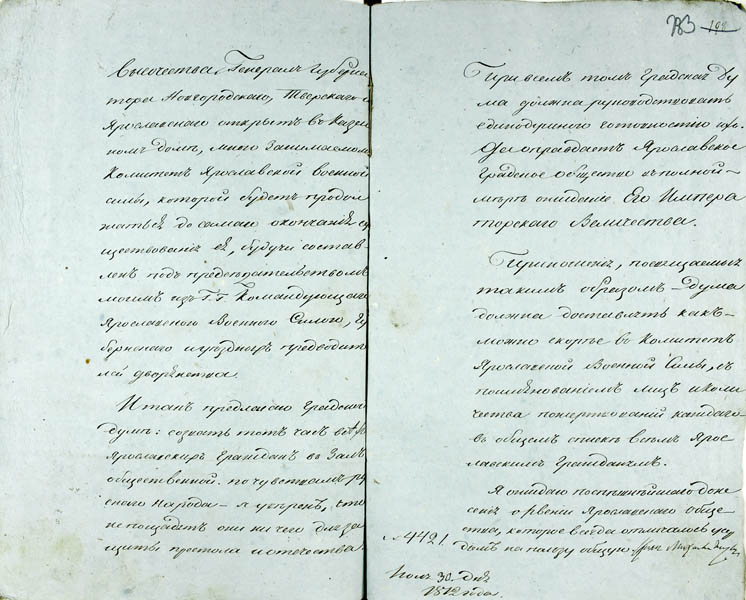 высочества Генералъ Губерна
тора Новгородскаго, Тверскаго и
Ярославскаго открытъ въ Казен
номъ домѣ, мною занимаемомъ
Комитетъ Ярославской военной
силы, которой будетъ продол
жаться до самаго окончанія су
ществованія ея, будучи состав-
ленъ подъ предсѣдательствомъ
моимъ изъ Г.г. Командующаго
Ярославскою Военною Силою, Гу
бернскаго и уѣздныхъ предводите
лей дворянства.
И такъ предлагаю Градской
думѣ: созвать тотъ часъ всѣхъ
Ярославскихъ Гражданъ въ Залъ
общественной. по чувствамъ рус
скаго народа я увѣренъ, что
не пощадятъ они ни чего для за
щиты престола и отечества.
783 198
При всемъ томъ Градская Ду
ма должна руководствовать
единодушною готовностію
оправдаетъ Ярославское
Градское общество въ полной
мѣрѣ ожиданіе Его Импера
торскаго Величества.
Приношеніи, посвящаемыя
такимъ образомъ Дума
должна доставлять какъ-
можно скорѣе въ Комитетъ
Ярославской Военной Силы, съ
поимянованіемъ лицъ и коли
чества пожертвованій каждаго
въ общемъ спискѣ всѣмъ Ярос
лавскимъ Гражданамъ.
Я ожидаю поспѣшнѣйшаго доне
сенія о рвеніи Ярославскаго обще
ства, которое всегда отличалось усер
діемъ на пользу общую.
№ 4421.
Іюля 30. дня
1812 года.